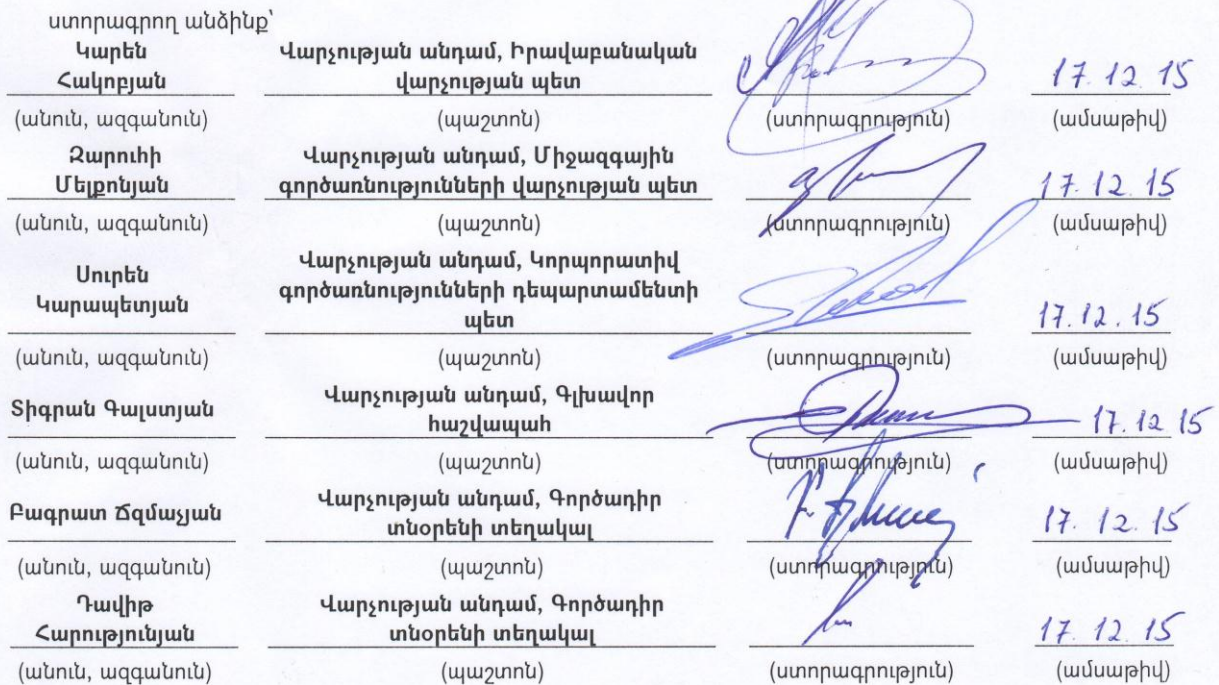 ստորագրող անձինք՝
Կարեն Վարչության անդամ, Իրավաբանական
Հակոբյան վարչության պետ 17.12.15
(անուն, ազգանուն) (պաշտոն) (ստորագրություն) (ամսաթիվ)
Զարուհի Վարչության անդամ, Միջազգային
Մելքոնյան գործառնությունների վարչության պետ 17.12.15
(անուն, ազգանուն) (պաշտոն) (ստորագրություն) (ամսաթիվ)
Սուրեն Վարչության անդամ, Կորպորատիվ
Կարապետյան գործառնությունների դեպարտամենտի
պետ 17.12.15
(անուն, ազգանուն) (պաշտոն) (ստորագրություն) (ամսաթիվ)
Տիգրան Գալստյան Վարչության անդամ, Գլխավոր
հաշվապահ 17.12.15
(անուն, ազգանուն) (պաշտոն) (ստորագրություն) (ամսաթիվ)
Բագրատ Ճզմաչյան Վարչության անդամ, Գործադիր
տնօրենի տեղակալ 17.12.15
(անուն, ազգանուն) (պաշտոն) (ստորագրություն) (ամսաթիվ)
Դավիթ Վարչության անդամ, Գործադիր
Հարությունյան տնօրենի տեղակալ 17.12.15
(անուն, ազգանուն) (պաշտոն) (ստորագրություն) (ամսաթիվ)